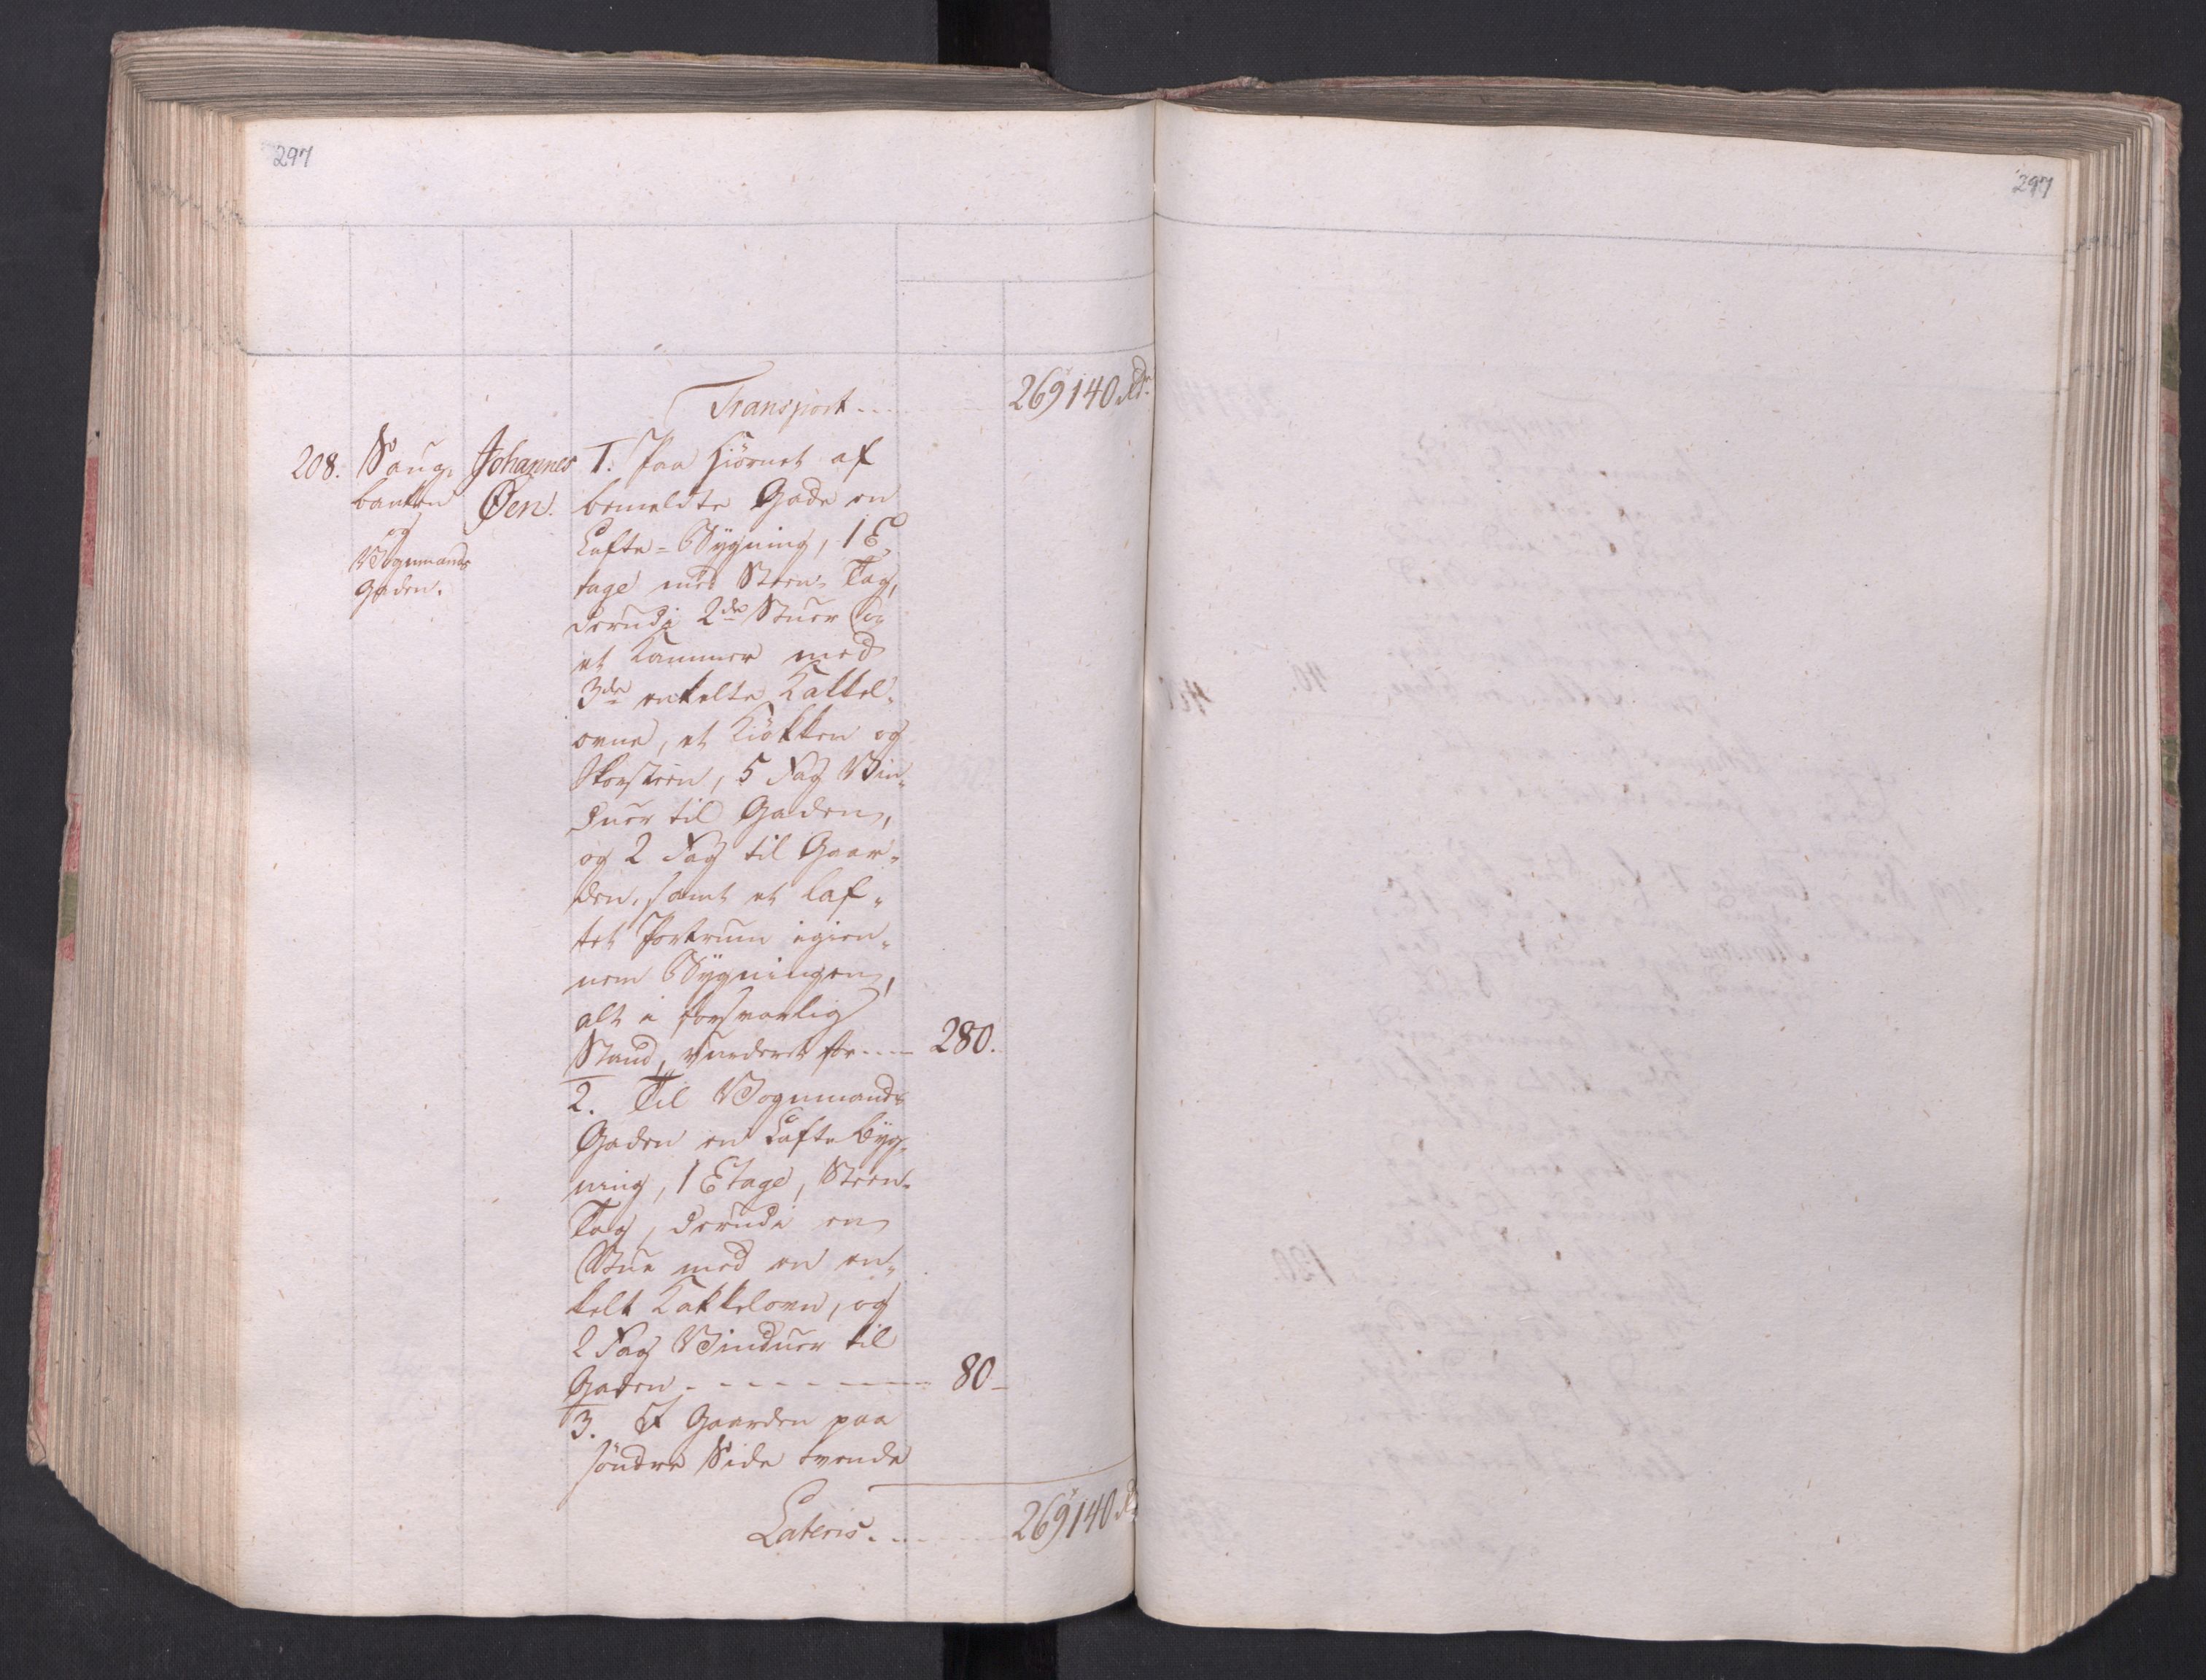 297
297
Transport - - - 269140 Rdr.
208. Saug-
banken
og
Vognmands
Gaden.
Johannes
Øen.
1. Paa Hiörnet af
bemeldte Gade en
Lafte-Bÿgning, 1 E-
tage med Steen Tag,
derudi 2de Stuer og
et Kammer med
3de enkelte Kakkel-
ovne, et Kiökken og
Skorsteen, 5 Fag Vin-
duer til Gaden,
og 2 Fag til Gaar-
den, samt et laf-
tet Portrum igien-
nem Bÿgningen,
alt i forsvarlig
Stand, vurderet for - - - 280.
2. Til Vognmands
Gaden en Lafte Byg-
ning, 1 Etage, Steen-
Tag, derudi en
Stue med en en-
kelt Kakkelovn, og
2 Fag Vinduer til
Gaden - - - - - - 80 -
3. I Gaarden paa
söndre Side tvende
Lateris - - - 269140 Rd